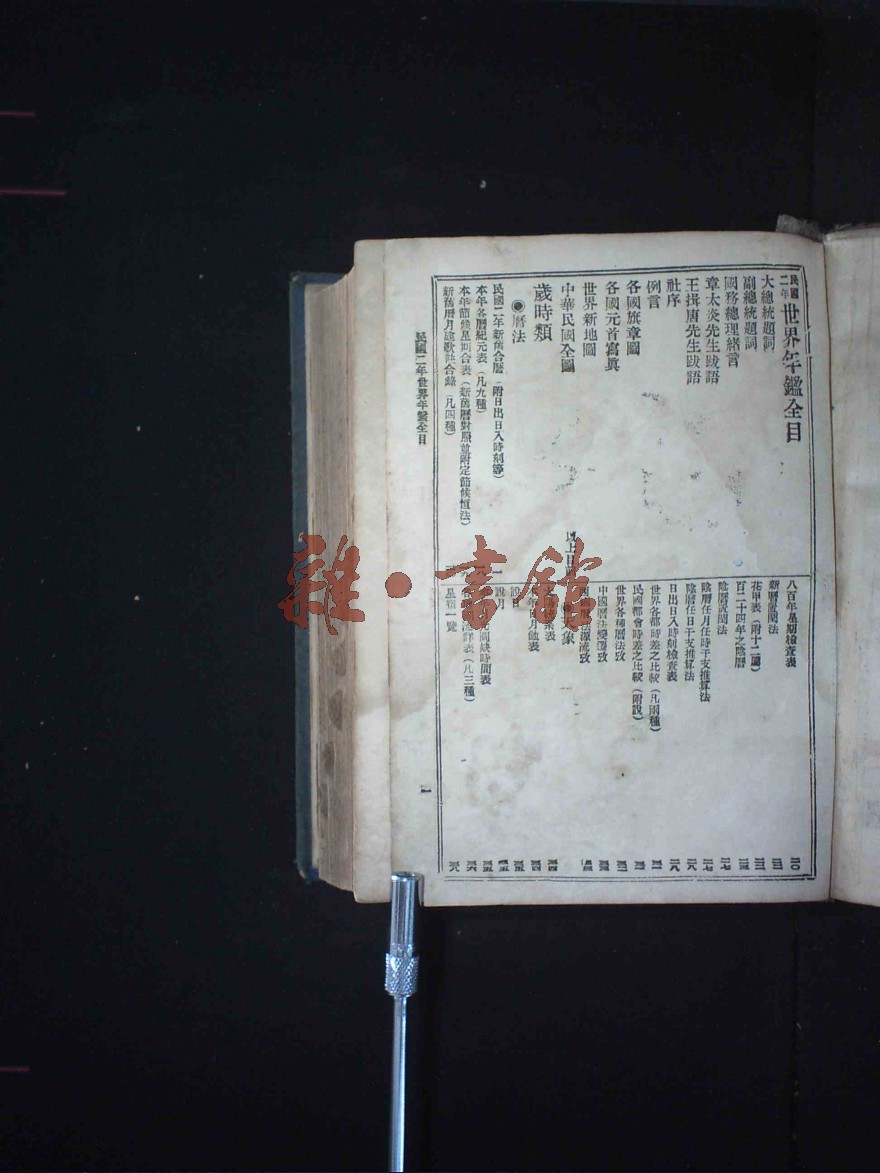 民國二年世界年鑑全目
大總統題詞
副總統題詞
國務總理緒言
章太炎先生跋語
王揖唐先生跋語
社序
例言
各國旗章圖
各國元首寫真
世界新地圖
中華民國全圖
以上目
歲時類
●曆法
民國二年新舊合曆（附日出日入時刻等）
本年各曆紀元表（凡九種）
本年節候星期合表（新舊曆對照並附定節候恒法）
新舊曆月建歌訣合錄（凡四種）
八百年星期檢查表
新曆置閏法
花甲表（附十二屬）
百二十四年之陰曆
陰曆置閏法
陰曆任月任時干支推算法
陰曆任日干支推算法
日出日入時刻檢查表
世界各都時差之比較（凡兩種）
民國都會時差之比較（附說）
世界各種曆法攷
中國曆法變遷攷
源流攷
象
表
月蝕表
說日
說月
圓缺時間表
詳表（凡三種）
星宿一覽
民國二年世界年鑑全目
一
雜·書館